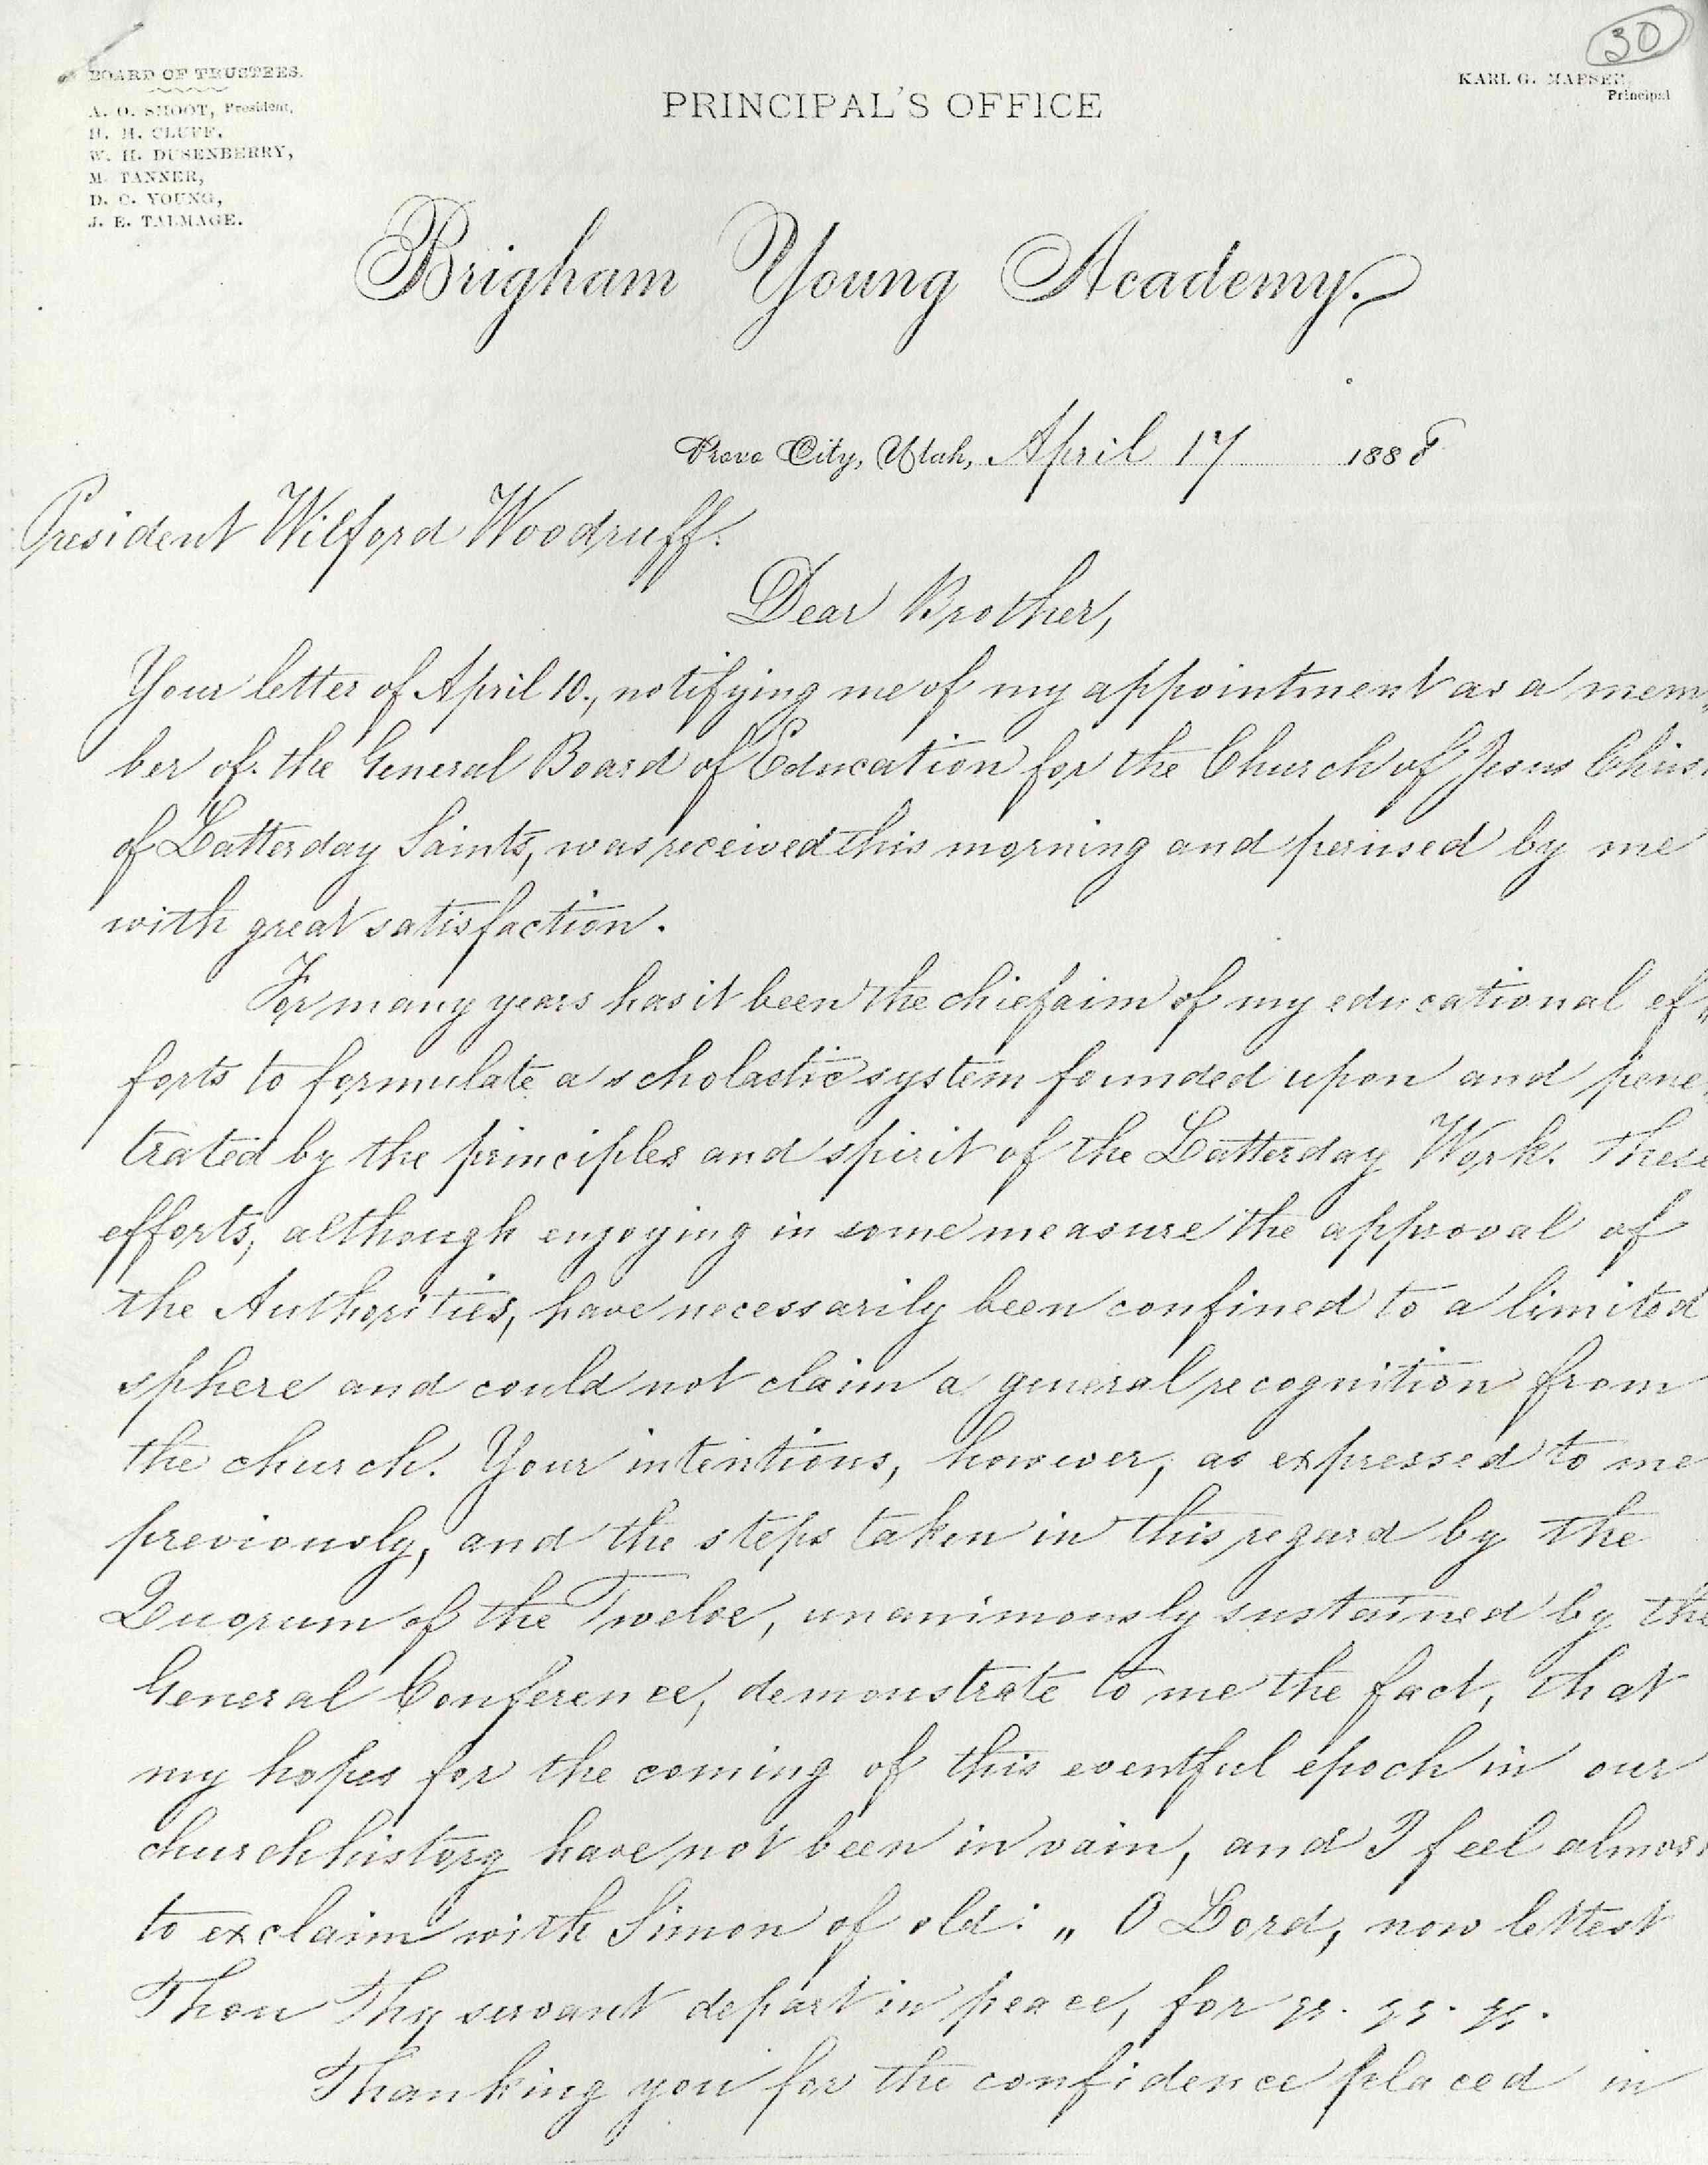 30
BOARD OF TRUSTEES.
A. O. SMOOT, President,
H. H. CLUFF,
W. H. DUSENBERRY,
M. TANNER,
D. C. YOUNG,
J. E. TALMAGE.
PRINCIPAL'S OFFICE
KARL G. MAESER,
Principal
Brigham Young Academy.
Provo City, Utah, April 17 1888
President Wilford Woodruff.
Dear Brother,
Your letter of April 10., notifying me of my appointment as a mem„
ber of the General Board of Education for the Church of Jesus Chris
of Latterday Saints, was received this morning and perused by me
with great satisfaction.
For many years has it been the chief aim of my educational ef„
forts to formulate a scholastic system founded upon and pene„
trated by the principles and spirit of the Latterday Work. These
efforts, although enjoying in some measure the approval of
the Authorities, have necessarily been confined to a limited
sphere and could not claim a general recognition from
the church. Your intentions, however, as expressed to me
previously, and the steps taken in this regard by the
Quorum of the Twelve, unanimously sustained by the
General Conference, demonstrate to me the fact, that
my hopes for the coming of this eventful epoch in our
churchhistory have not been in vain, and I feel almos
to exclaim with Simon of old: „ O Lord, now lettest
Thou Thy servant depart in peace, for
Thanking you for the confidence placed in